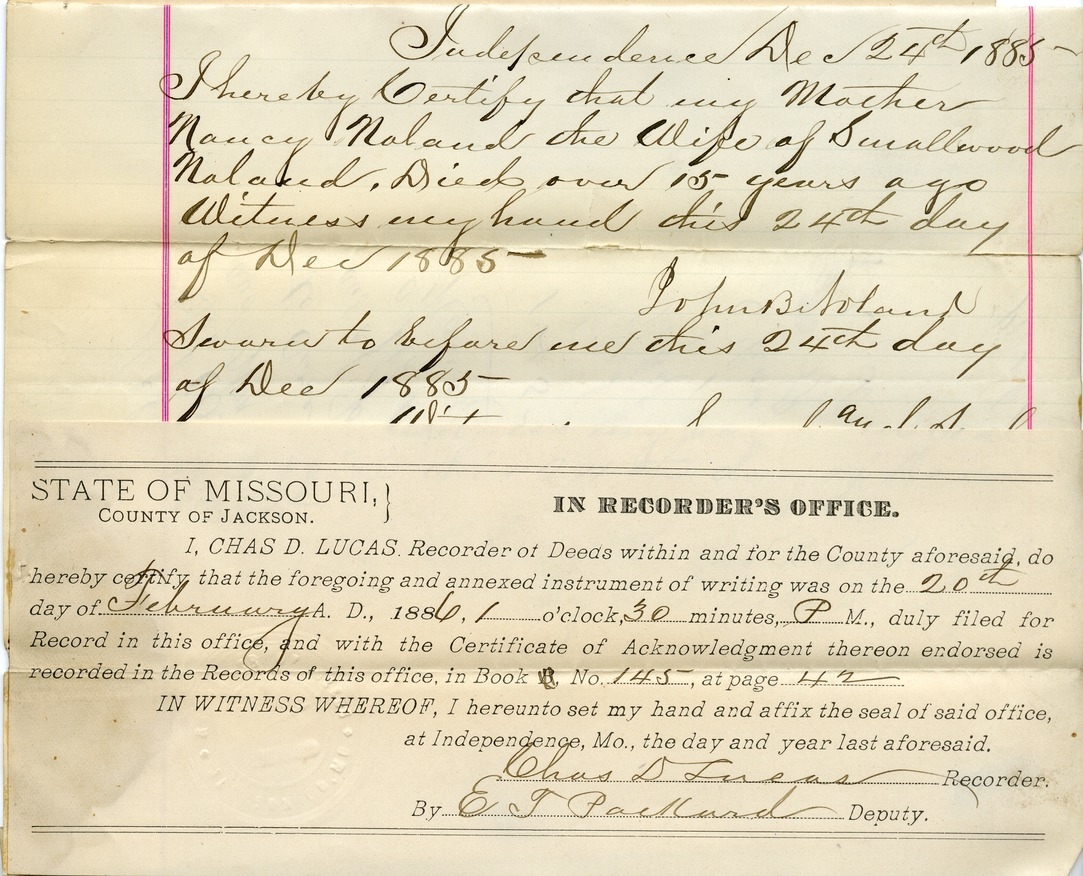 Independence Dec 24th 1885
I hereby Certify that my Mother
Nancy Noland the Wife of Smallwood
Noland, Died over 15 years ago
Witness my hand this 24th day
of Dec 1885
John B. Noland
Sworn to before me this 24th day
of Dec 1885
STATE OF MISSOURI, }
COUNTY OF JACKSON.
IN RECORDER'S OFFICE.
I, CHAS D. LUCAS. Recorder of Deeds within and for the County aforesaid, do
hereby certify, that the foregoing and annexed instrument of writing was on the 20th
day of February A. D., 1886, 1 o'clock, 30 minutes, P M., duly filed for
Record in this office, and with the Certificate of Acknowledgment thereon endorsed is
recorded in the Records of this office, in Book No. 145, at page 42
IN WITNESS WHEREOF, I hereunto set my hand and affix the seal of said office,
at Independence, Mo., the day and year last aforesaid.
Chas D Lucas Recorder.
By E T Packard Deputy.